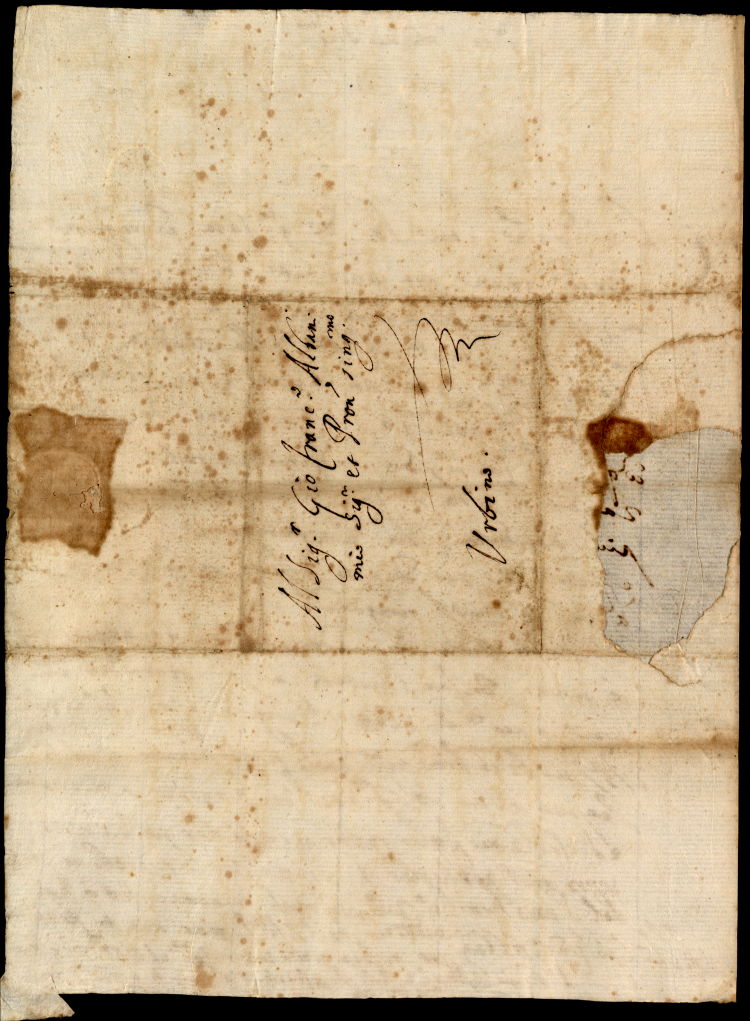 Al Sig.r Gio franc.o Alban.
mio Sig.r et Pron' sing.mo
Urbino.